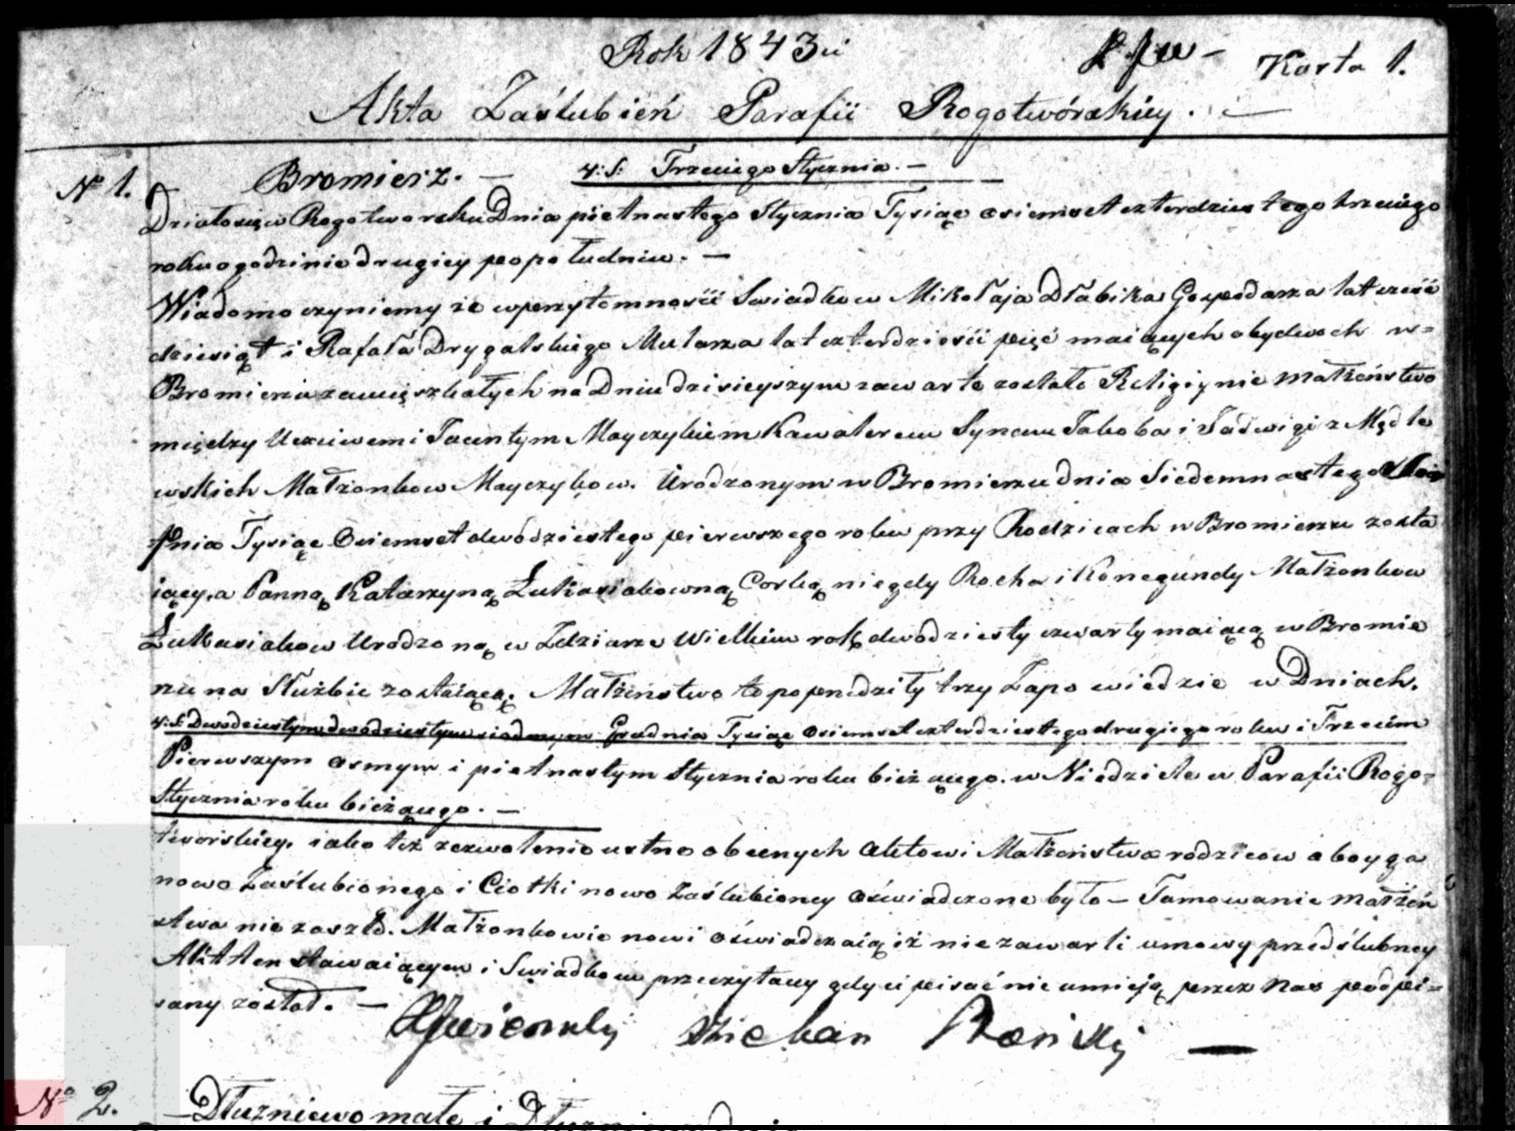 Rok 1843ci
Karta 1.
Akta Zaślubień Parafii Rogotwórskiey.
No 1. Bromierz. — v: s: Trzeciego Stycznia. —
Działosię w Rogotworsku Dnia piętnastego Stycznia Tysiąc osiemset czterdziestego trzeciego
roku o godzinie drugiey popołudniu. —
Wiadomo czyniemy że w przytomności Swiadkow Mikołaja Dłabika Gospodarza lat sześć
dziesiąt i Rafała Drygalskiego Mularza lat czterdzieści pięć maiących obydwoch w=
Bromierzu zamięszkałych na Dniu dzisieyszym zawarte zostało Religiynie Małżeństwo
między Uczciwemi Jacentym Mayczykiem Kawalerem Synem Jakoba i Jadwigi z Mędle
wskich Małżonkow Mayczykow. Urodzonym w Bromierzu dnia Siedemnastego Sier
pnia Tysiąc Osiemset dwódziestego pierwszego roku przy Rodzicach w Bromierzu zosta
iący, a Panną Katarzyną Łukasiakowną Corką niegdy Rocha i Konegundy Małżonkow
Łukasiakow Urodzoną w Zdziarze Wielkim rok dwódziesty czwarty maiącą w Bromie
rzu na Służbie zostaiącą. Małżeństwo to poprzedziły trzy Zapowiedzie w Dniach.
v: s: Dwodziestym dwodziestym siodmym Grudnia Tysiąc osiemset czterdziestego drugiego roku i Trzecim
Pierwszym osmym i piętnastym Stycznia roku bieżącego. w Niedziele w Parafii Rogo=
Stycznia roku bieżącego. —
tworskiey. iako też zezwolenie ustne obecnych Aktowi Małżeństwa rodzicow oboyga
nowo Zaślubionego i Ciotki nowo Zaślubioney oświadczone było — Tamowanie Małżeń
stwa nie zaszło. Małżonkowie nowi oświadczaią iż nie zawarli umowy przedślubney
Akt ten stawaiącym i Swiadkom przeczytany gdy ci pisać nie umieją przez Nas podpi=
sany został. —
No 2. — Dłużniewo małe i